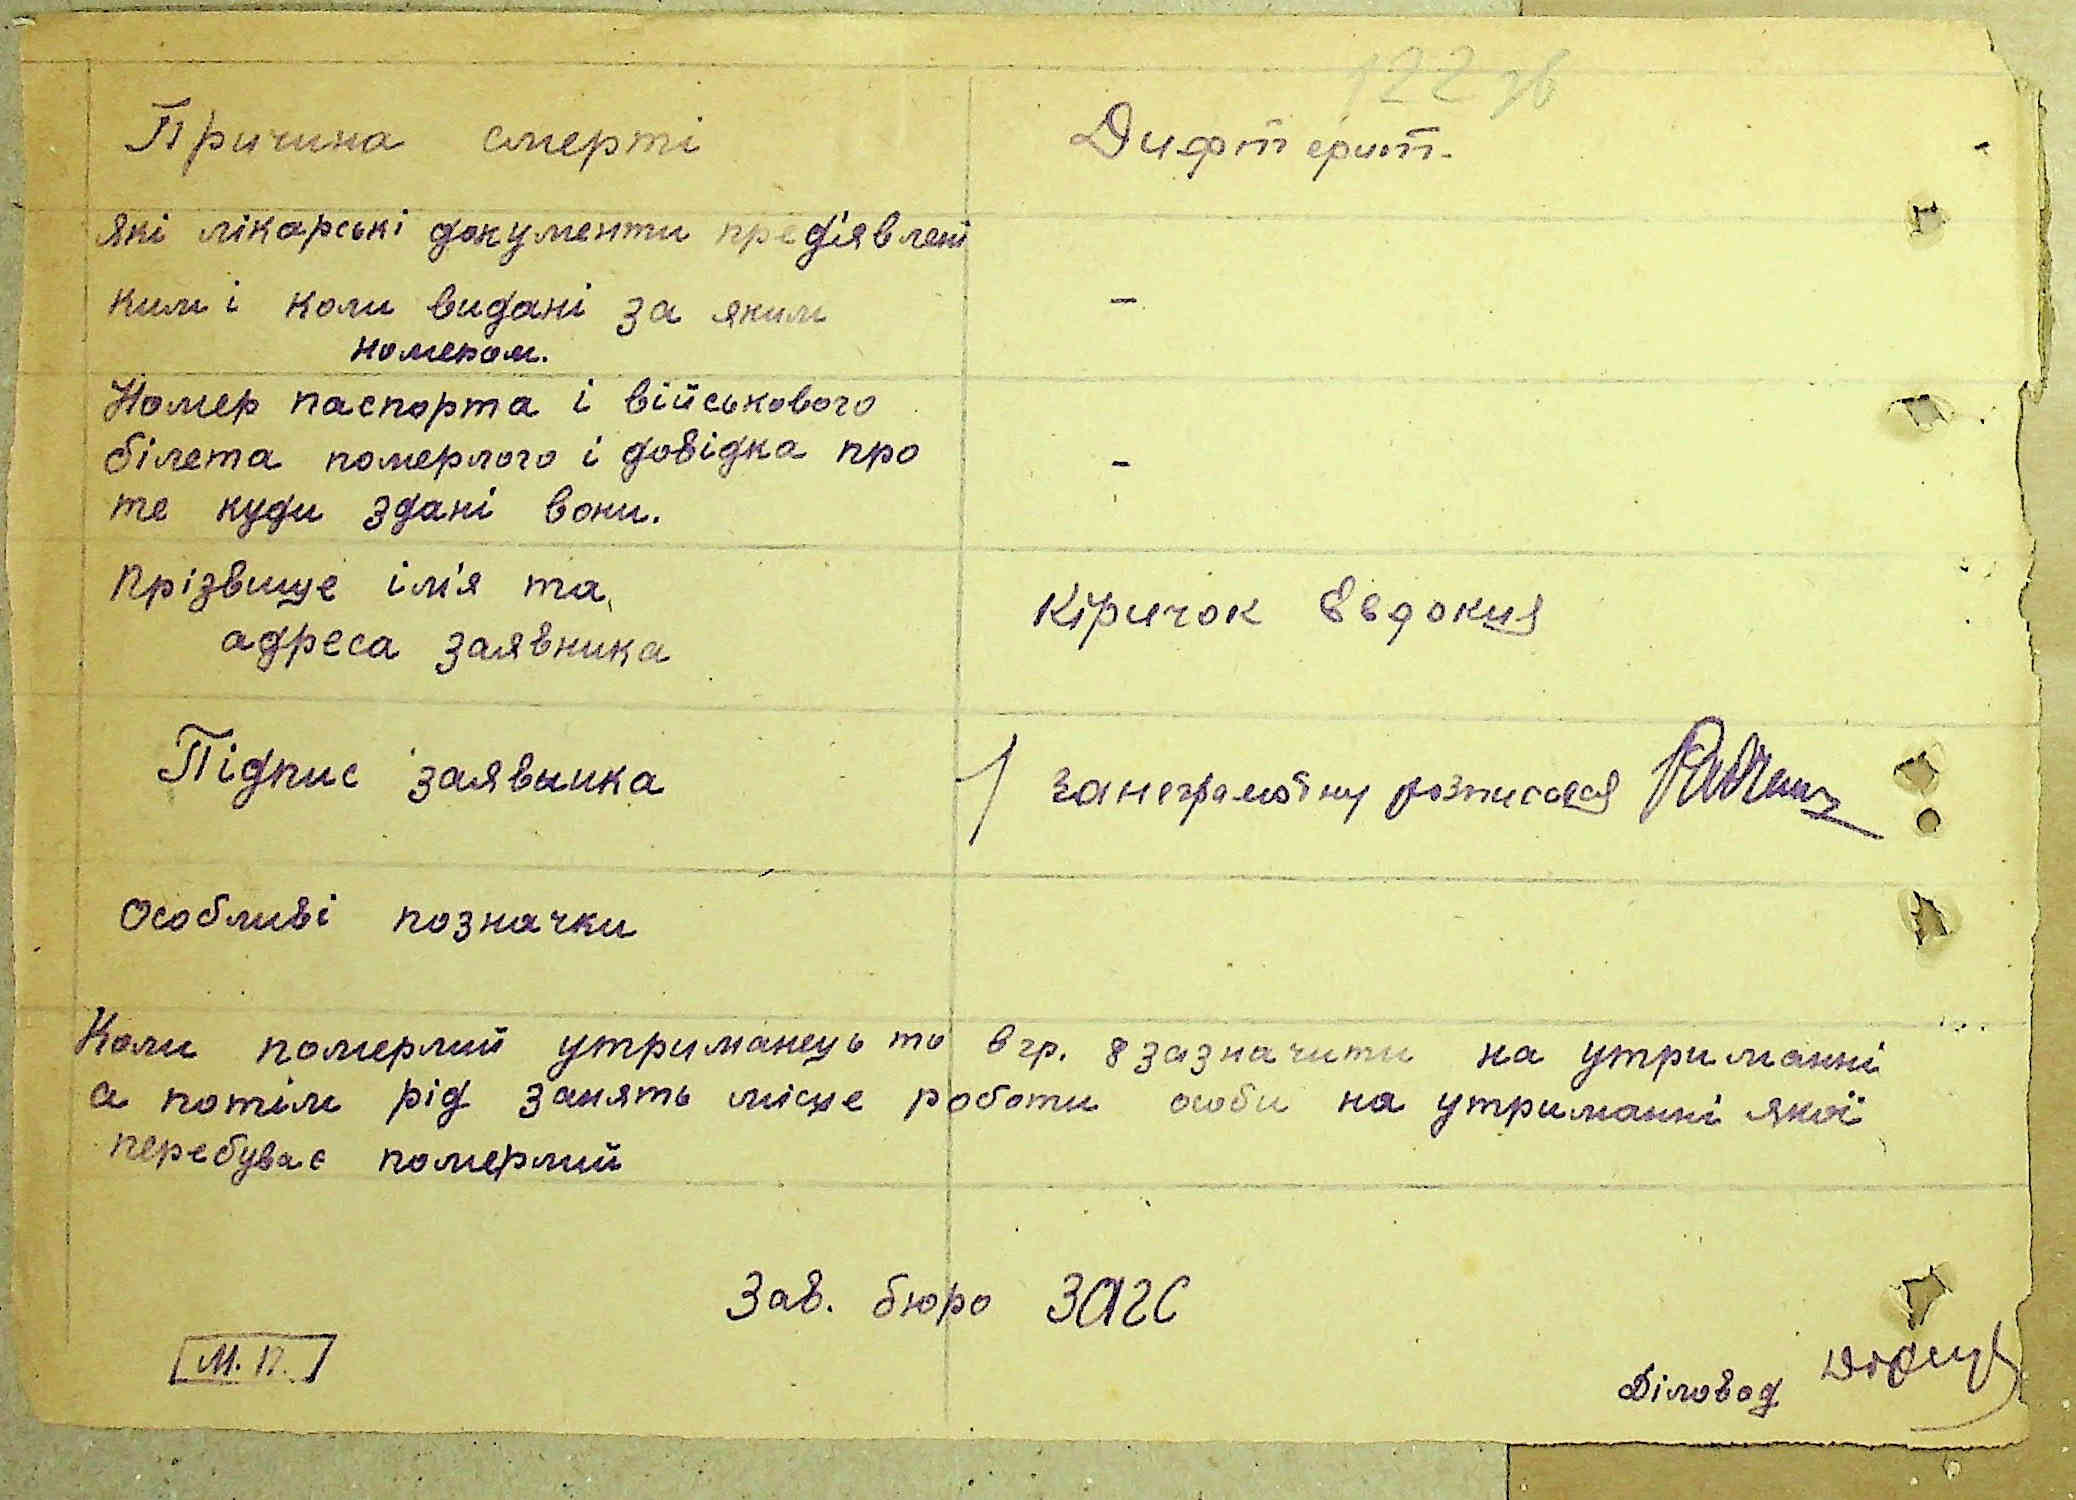 122 зв
Причина смерті Дифтерит.
Які лікарські документи предіявлені
ким і коли видані за яким –
номером.
Номер паспорта і військового
білета померлого і довідка про –
те куди здані вони.
Прізвище ім'я та
адреса заявника Кіричок Евдокия
Підпис заявника за неграмотну розписался
Особливі позначки
Коли померлий утриманець то в гр. 8 зазначити на утриманні
а потім рід занять місце роботи особи на утриманні якої
перебуває померлий
Зав. бюро ЗАГС
М. П.
Діловод